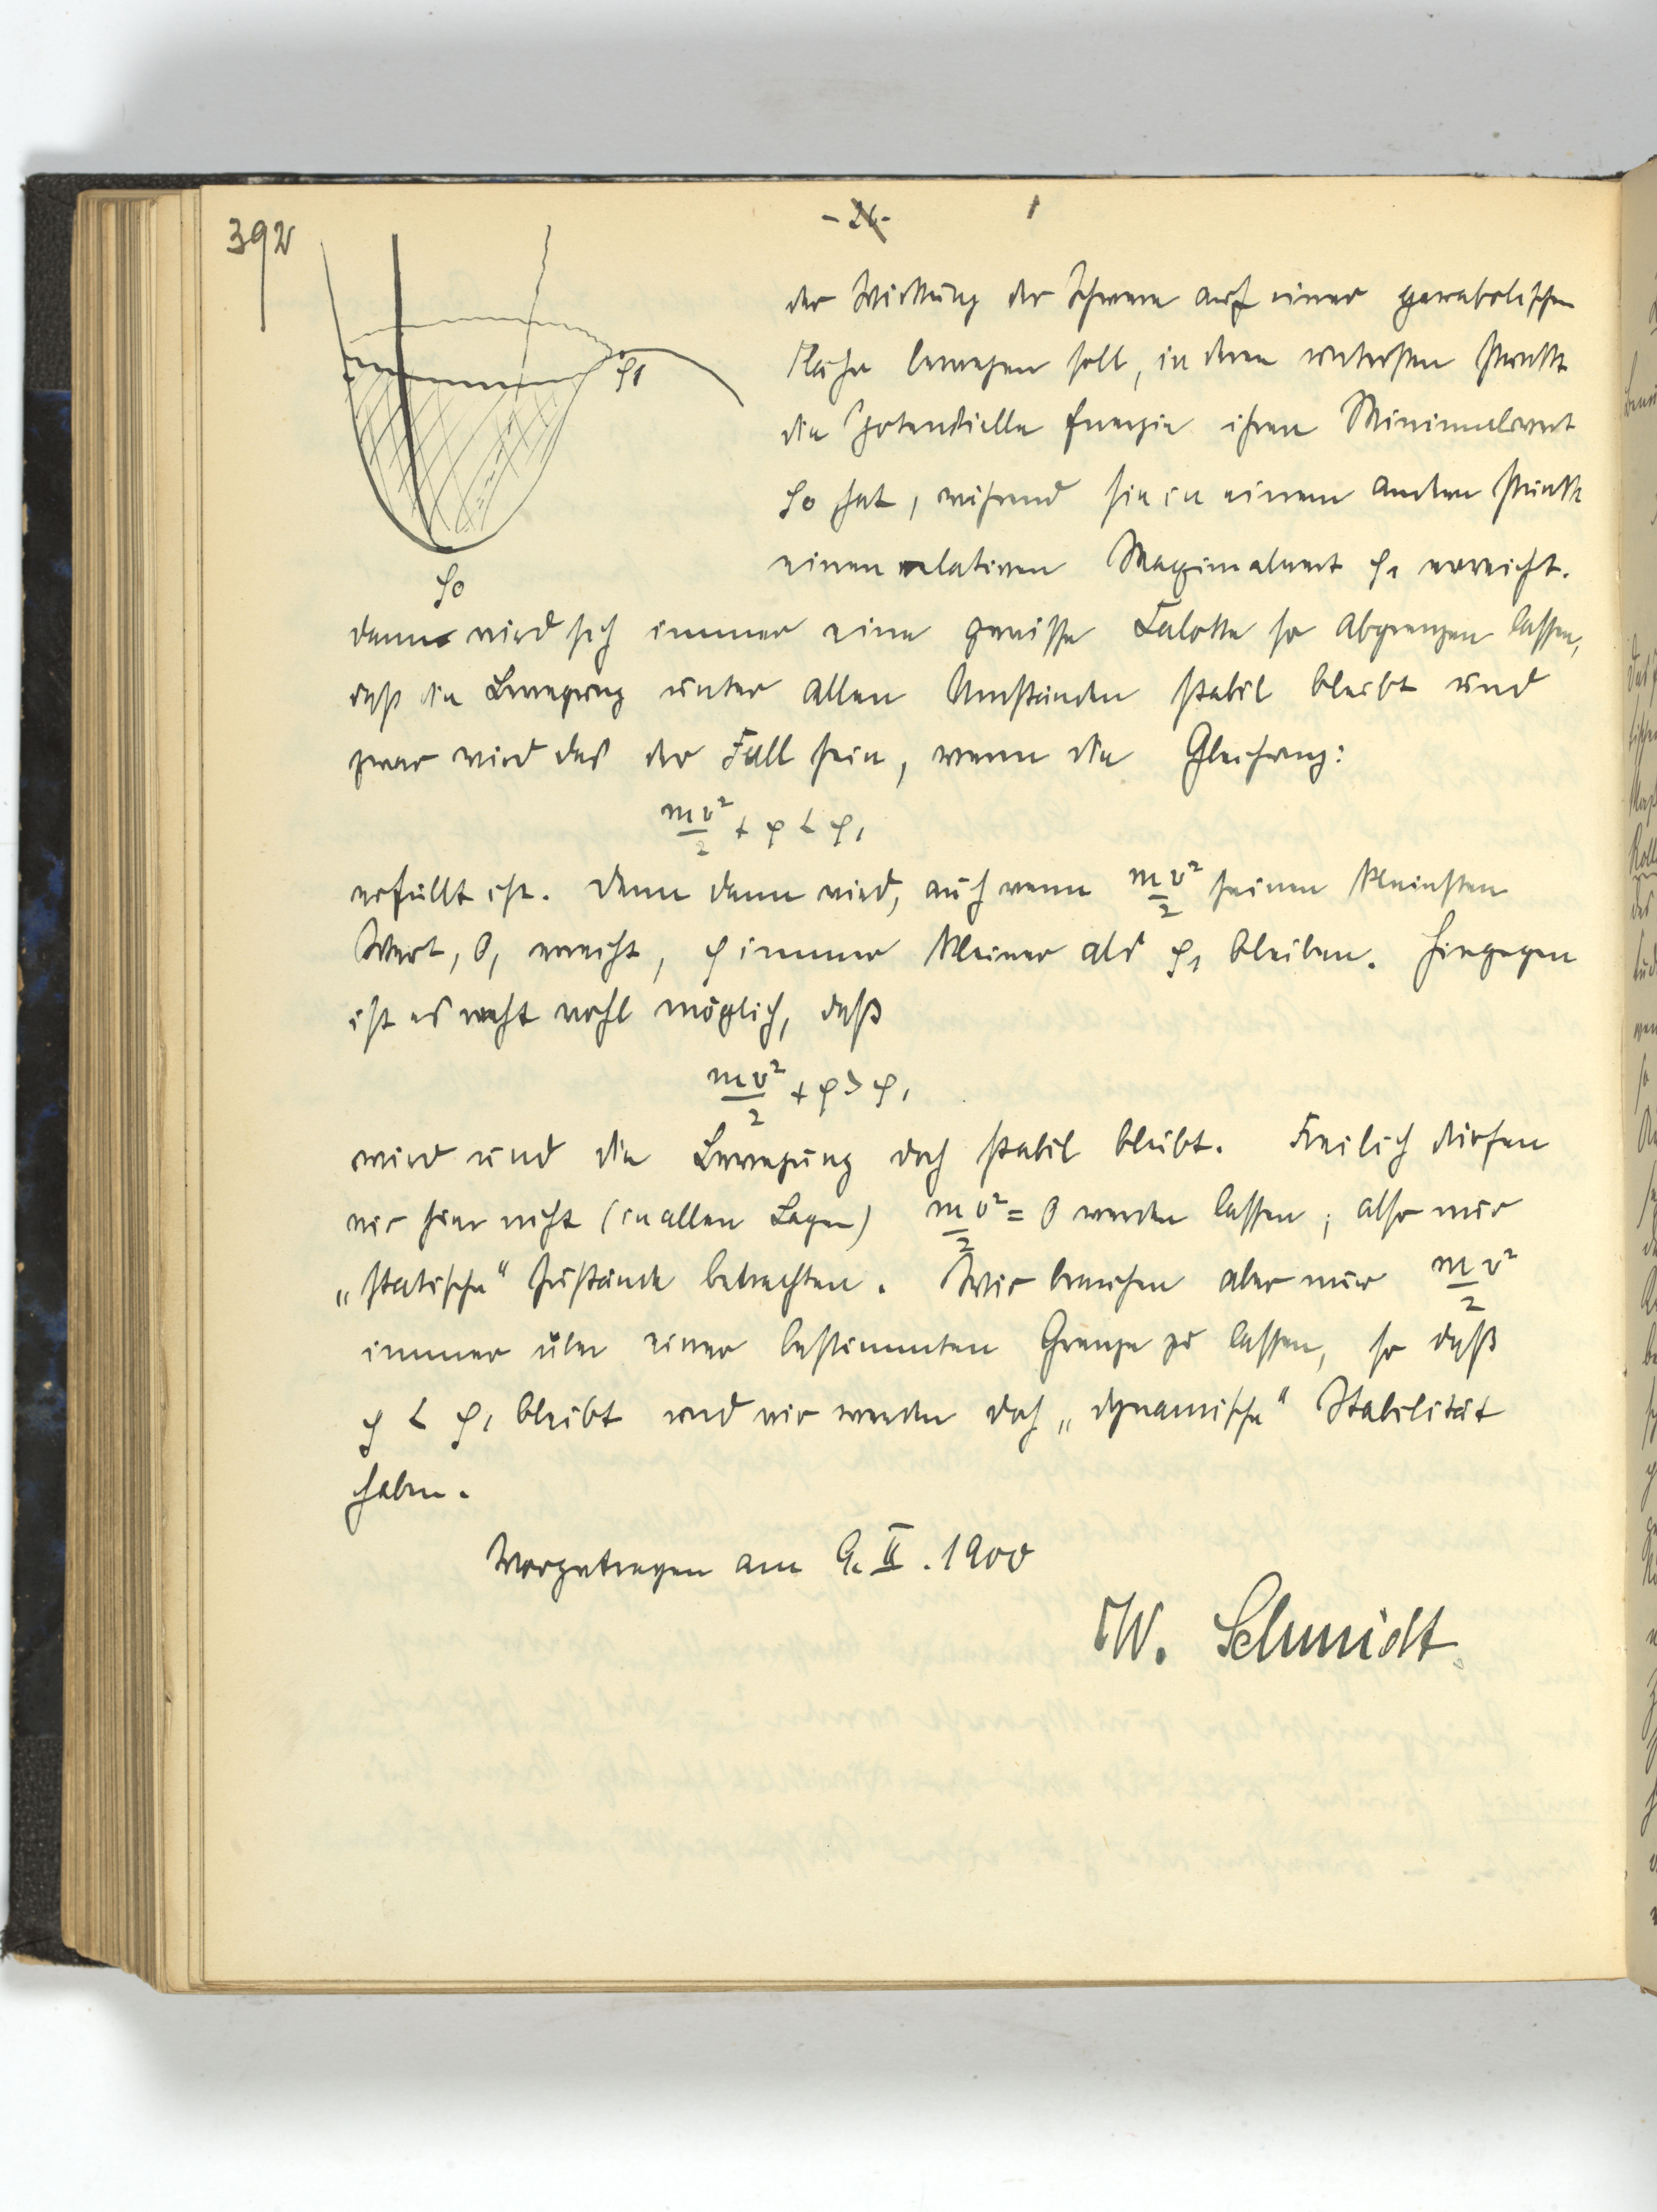 392
- 26 -
der Wirkung der Schwere auf einer parabolischen
Fläche bewegen soll, in deren untersten Punkt
die potentielle Energie ihren Minimalwert
φ0 hat, während sie in einem andern Punkt
einen relativen Maximalwert φ1 erreicht.
φ1
φ0
dann wird sich immer eine gewisse Calotte so abgrenzen lassen,
daß die Bewegung unter allen Umständen stabil bleibt und
zwar wird das der Fall sein, wenn die Gleichung:
mv²/2 + φ < φ1
erfüllt ist. Denn dann wird, auch wenn mv²/2 seinen kleinsten
Wert, 0, erreicht, φ immer kleiner als φ1 bleiben. Hingegen
ist es recht wohl möglich, daß
mv²/2 + φ > φ1
wird und die Bewegung doch stabil bleibt. Freilich dürfen
wir hier nicht (in allen Lagen) m/2 v² = 0 werden lassen, also nur
„statische“ Zustände betrachten. Wir brauchen aber nur m/2 v²
immer über einer bestimmten Grenze zu lassen, so daß
φ < φ1 bleibt und wir werden doch „dynamische“ Stabilität
haben.
Vorgetragen am 9. II. 1900
W. Schmidt.